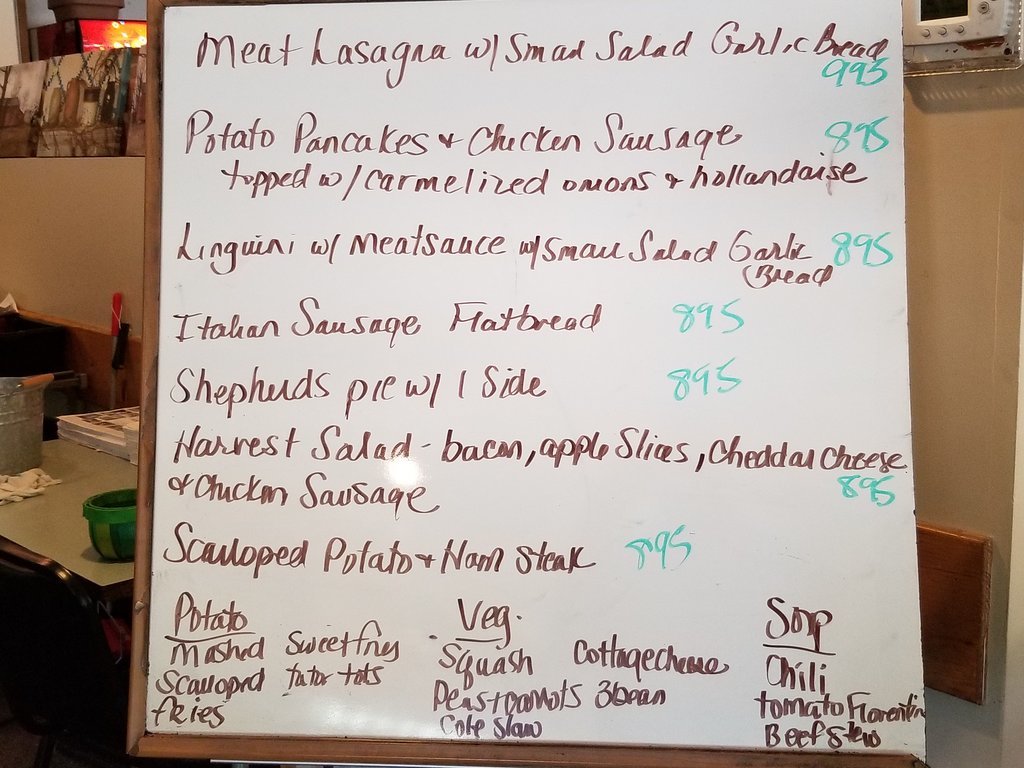 Meat Lasagna w/ Small Salad Garlic Bread
995
Potato Pancakes & Chicken Sausage 895
topped w/ carmelized onions & hollandaise
Linguini w/ Meatsauce w/ Small Salad Garlic 895
Bread
Italian Sausage Flatbread 895
Shepherds pie w/ 1 Side 895
Harvest Salad - bacon, apple Slices, Cheddar Cheese
& Chicken Sausage 895
Scalloped Potato & Ham Steak 895
Potato Veg. Soup
Mashed Sweet fries Squash Cottage cheese Chili
Scalloped tator tots Peas & carrots 3 bean tomato Florentin
fries Cole slaw Beef Stew